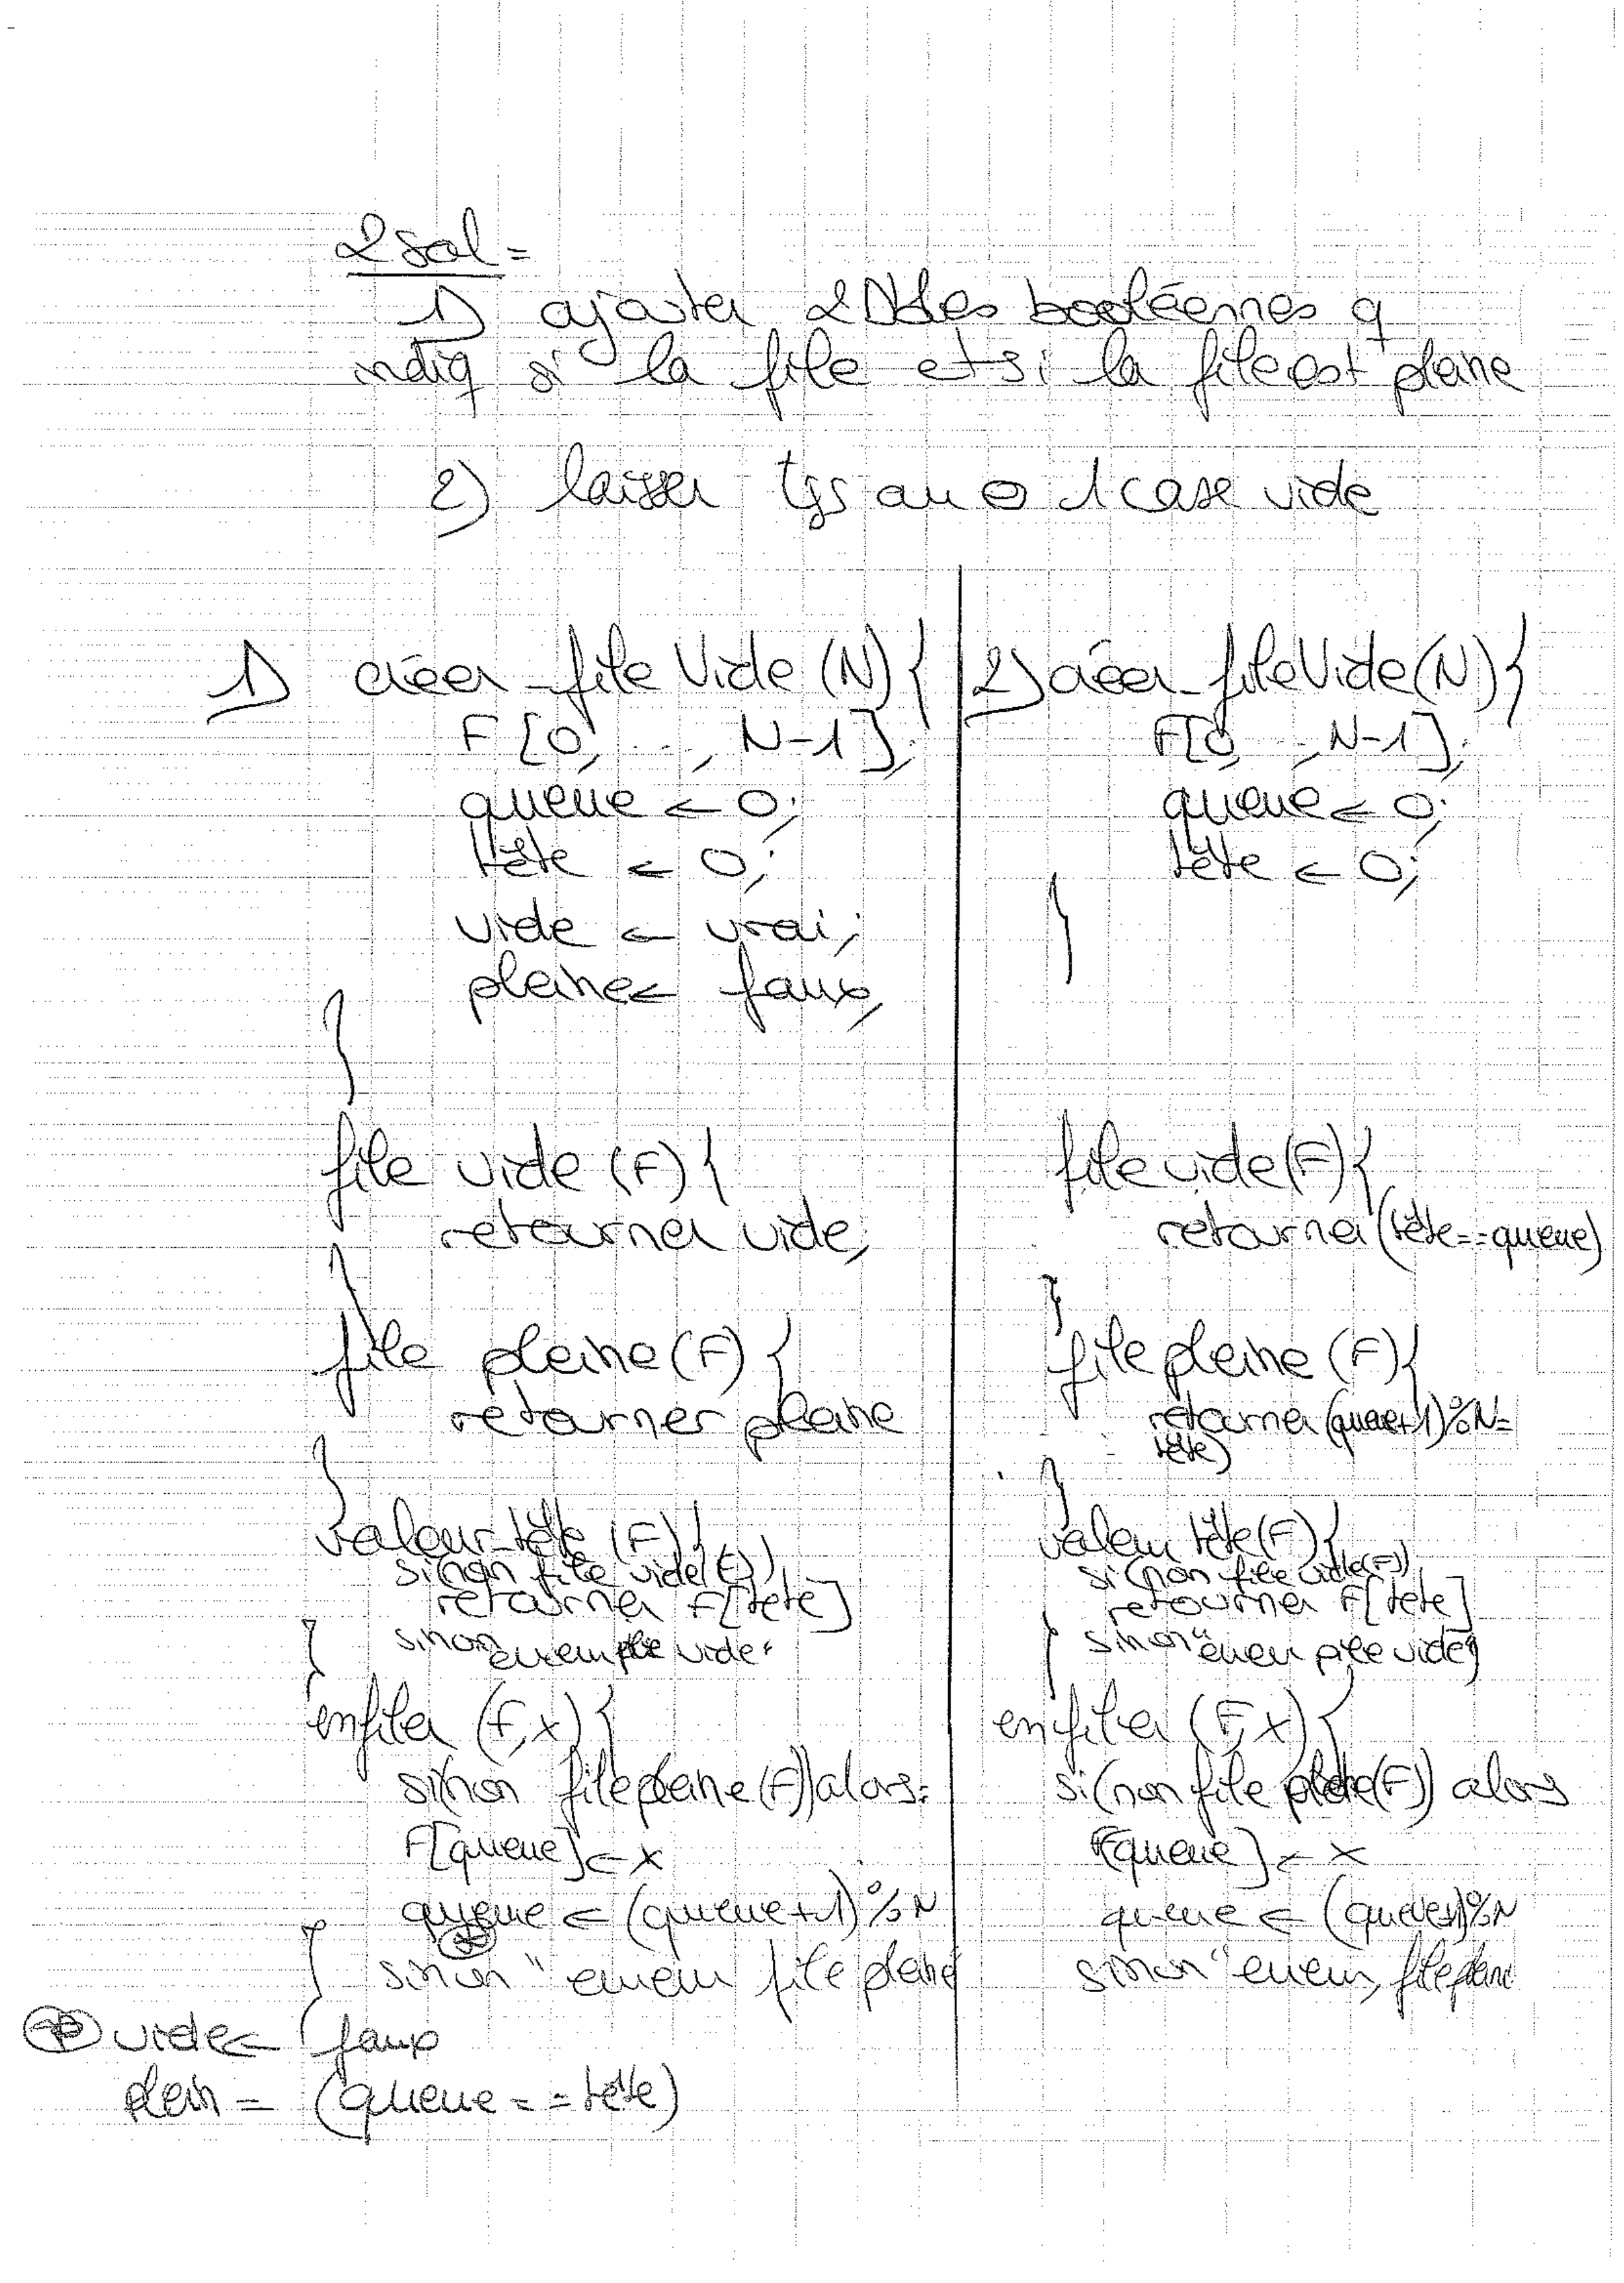 2 sol =
1) ajouter 2 Nbles booléennes q
indiq si la file et si la file est pleine
2) laisser tjs au ⊖ 1 case vide
1) créer_file Vide (N) {
F [0, ..., N-1];
queue ← 0;
tête ← 0;
vide ← vrai;
pleine ← faux;
}
file vide (F) {
retourner vide;
}
file pleine (F) {
retourner pleine
}
valeur_tête (F) {
si(non file vide(F))
retourner F[tete]
sinon
vide"
}
enfiler (F,x) {
si(non file pleine (F)) alors:
F[queue] ← x
queue ← (queue+1) % N
⊛
sinon "erreur file pleine
}
⊛ vide ← faux
plein = (queue == tête)
2) créer_fileVide(N) {
F[0, .., N-1];
queue ← 0;
tête ← 0;
}
file vide(F) {
retourner (tête==queue)
}
file pleine (F) {
retourner (queue+1)%N=
tête)
}
valeur tête(F) {
si (non file vide(F))
retourner F[tete]
sinon "erreur file vide"
}
enfiler (F,x) {
si(non file pleine(F)) alors
F[queue] ← x
queue ← (queue+1)%N
sinon "erreur, file pleine